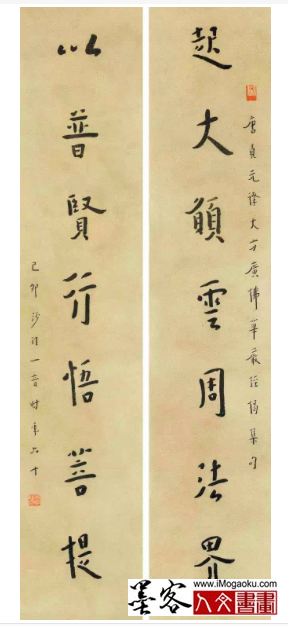 起大願雲周法界
唐貞元譯大方廣佛華嚴經偈集句
以普賢行悟菩提
己卯沙門一音時年六十
www.iMogaoku.com
墨客人文書畫